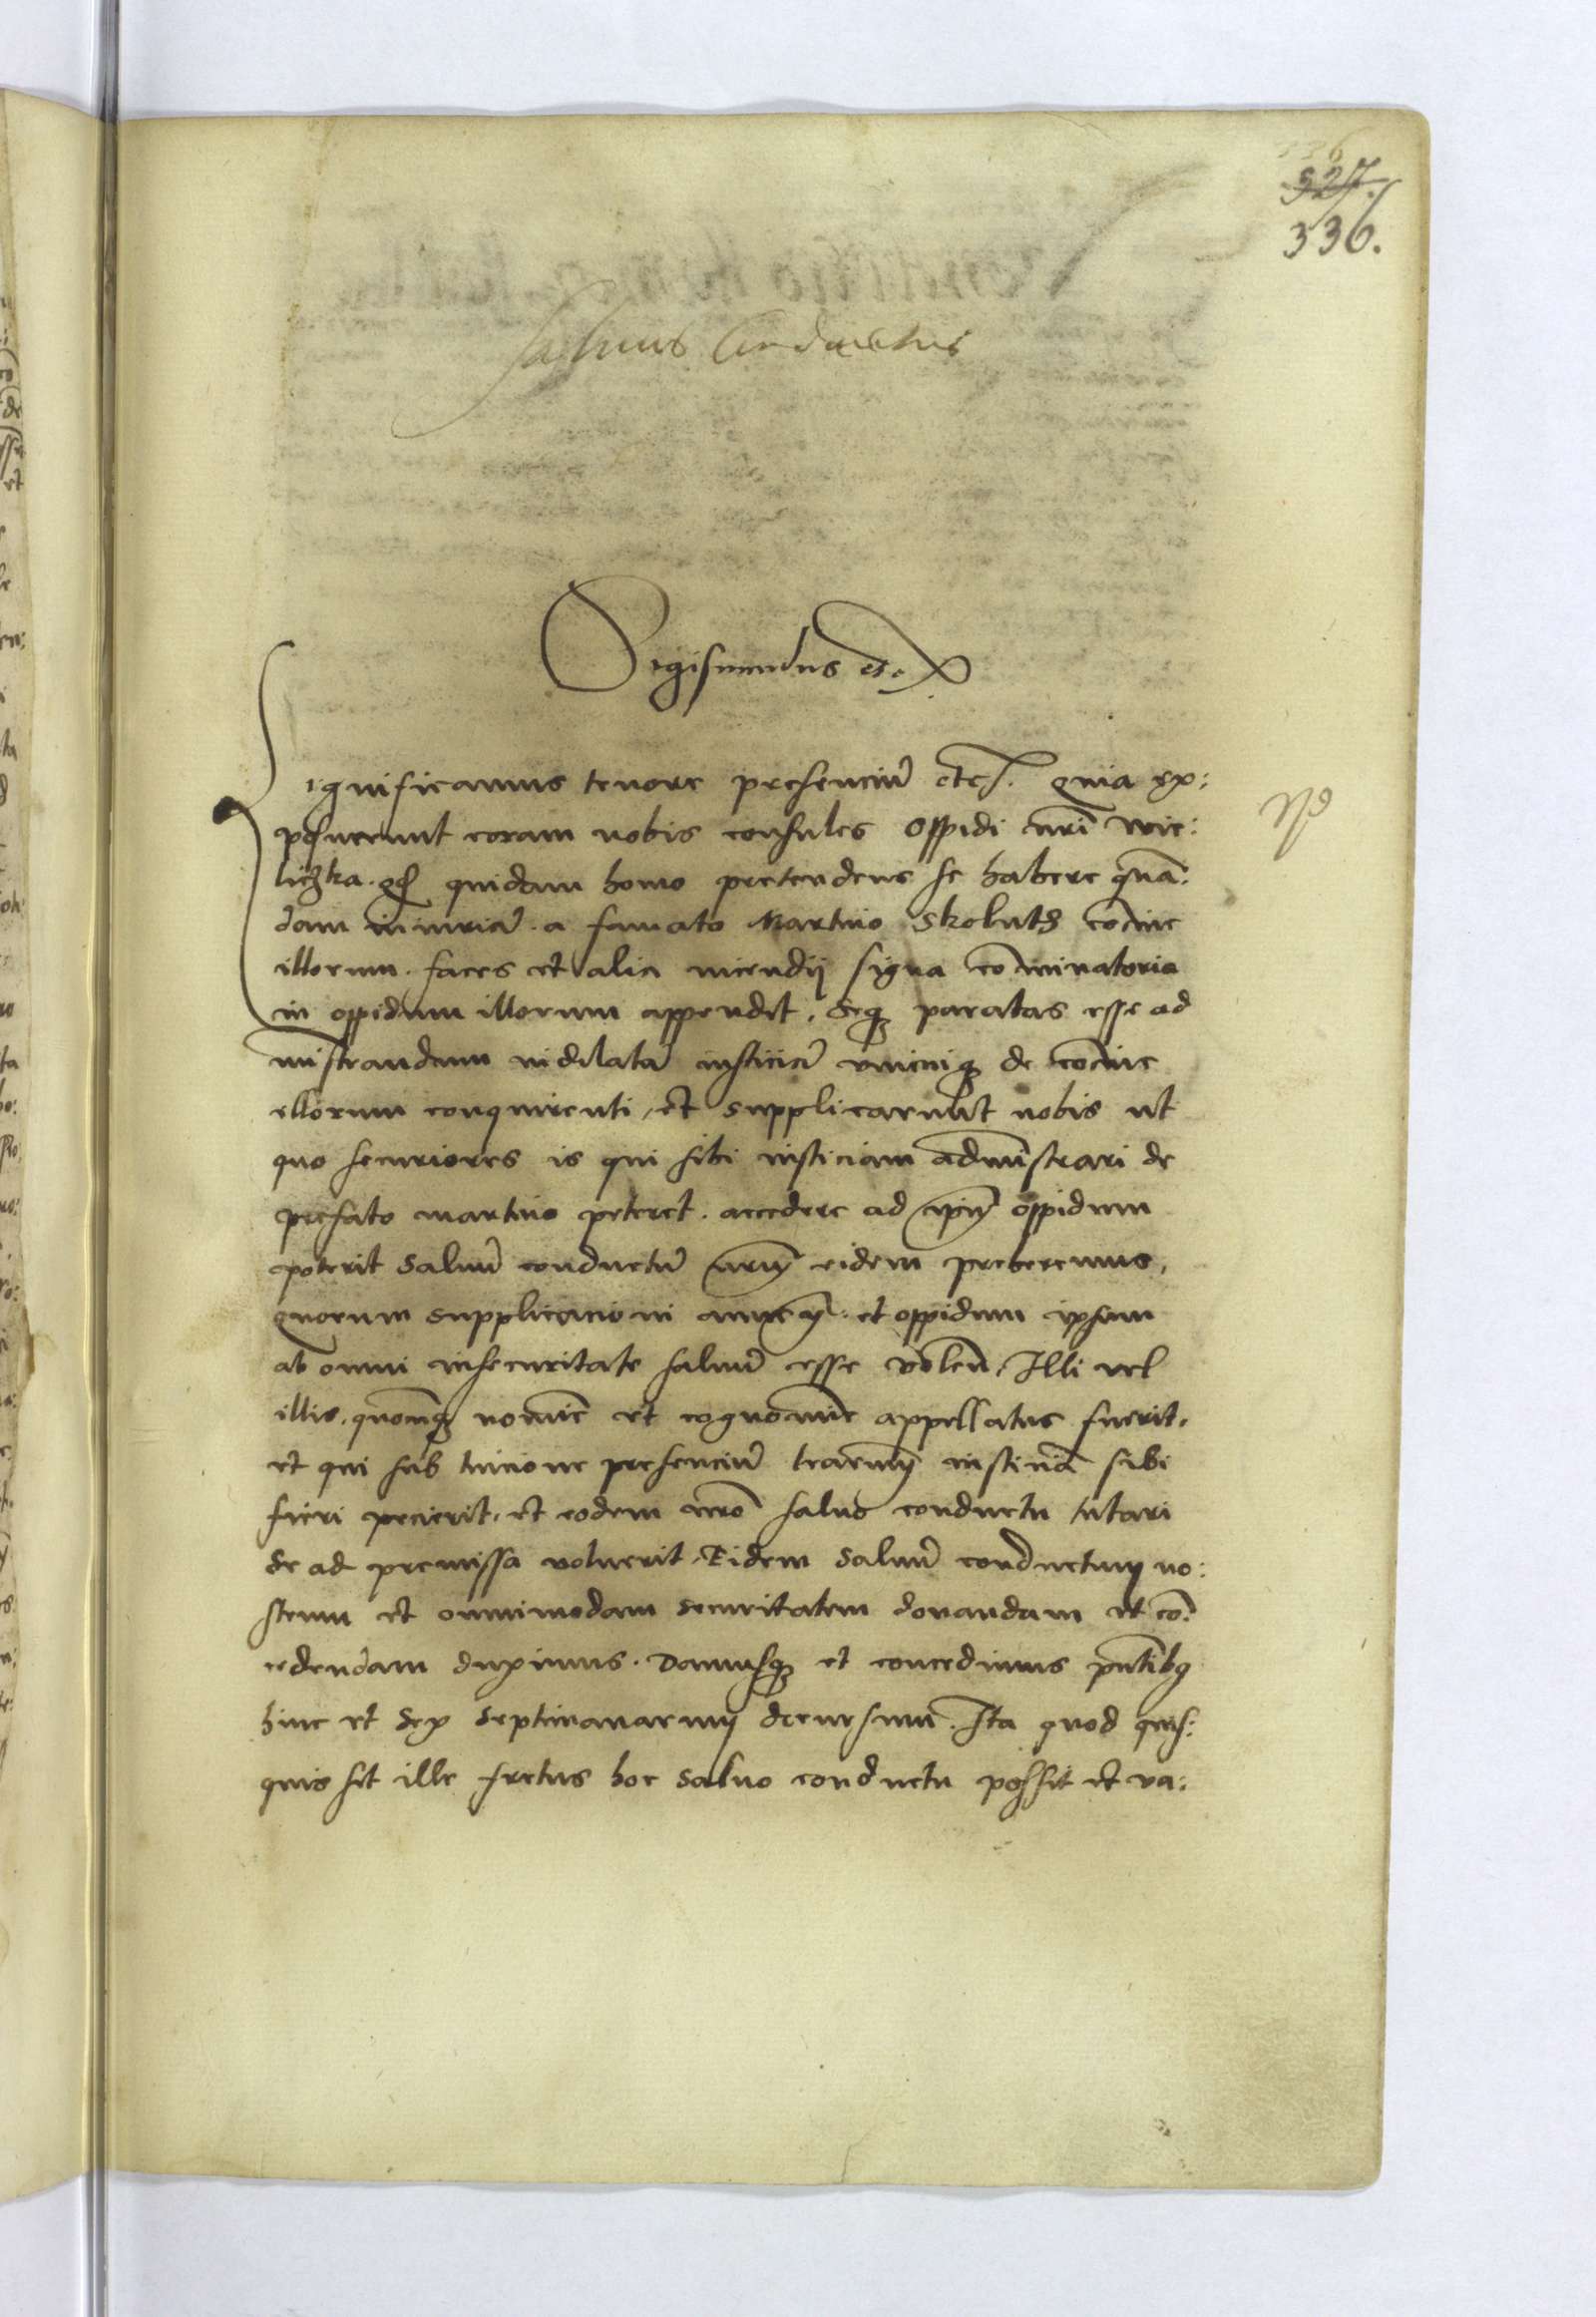 327.
336.
Salvus Conductus
Sigismundus etc.
Significamus tenore presenciũ etc. quia ex:
posuerunt coram nobis consules Oppidi nr̃i Wie:
liczka. qd quidam homo pretendens se habere quã:
dam iniuriã. a famato Martino Skolutȝ conciue
illorum. faces et alia incendij signa com̃inatoria
in oppidum illorum appendit. Seqȝ paratas esse ad
mĩstrandum indilatã iusticiã vnicuiqȝ de conciue
illorum conquirenti, et supplicarunt nobis ut
quo securiores is qui sibi iusticiam admĩstrari de
prefato martino peteret. accedere ad ip̃m oppidum
poterit saluũ conductũ nr̃um eidem preberemus,
quorum supplicacioni annuen̄. et oppidum ipsum
ab omni insecuritate saluũ esse volen̄. Illi vel
illis. quocũqȝ nomine et cognomine appellatus fuerit.
et qui sub tuicione presenciũ l̃rarum iusticiã sibi
fieri pecierit. et eodem nr̃o saluo conductu tutari
se ad premissa voluerit. Eidem saluũ conductum no:
strum et omnimodam securitatem donandam et con:
cedendam duximus. Damusqȝ et concedimus pñtibꝰ
hinc et sex septimanarum decursum. Ita quod quis:
quis sit ille fretus hoc saluo conductu possit et va: